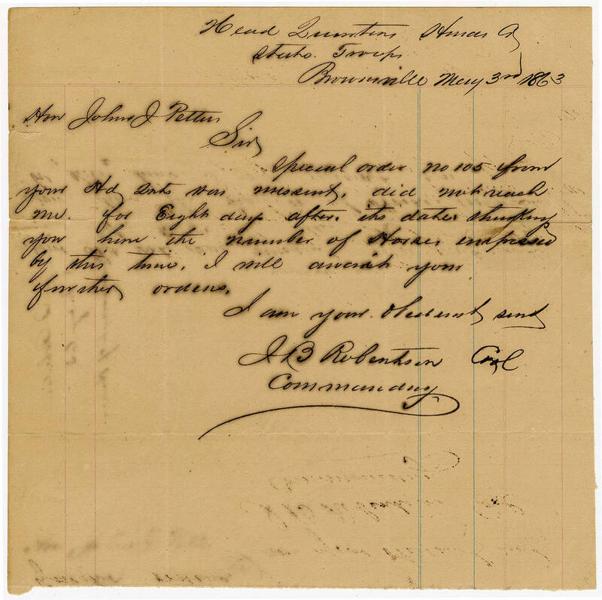 Head Quarters
State Troops
Brownville May 3rd 1863
Hon John J Pettus
Sir
Special order no 105 from
your Hd qrts was missent, did not reach
me. for Eight days after its date thinking
you have the number of Horses impressed
by this time. I will await your
further orders.
I am your Obedient servt
J B Robertson Col
Commanding